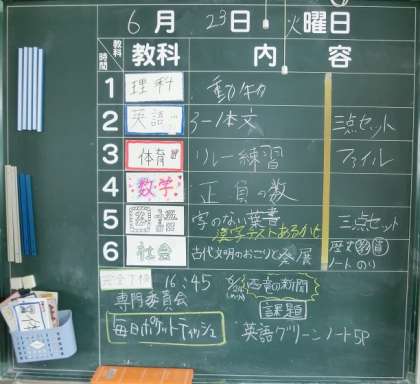 6月23日火曜日
教科 時間 教科 内容
1 理科 動物
2 英語 3-1本文 三点セット
3 体育 リレー練習 ファイル
4 数学 正負の数
5 国語 字のない葉書 三点セット
漢字テストあるかも
6 社会 古代文明のおこりと発展 歴プ 教 資
ノート のり
完全下校 16:45
専門委員会
毎日ポケットティッシュ
の新聞
課題
英語グリーンノート5P